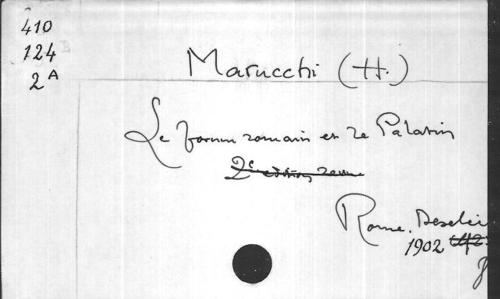 410
124
2 A
Marucchi (H.)
Le forum romain et le Palatin
2e edition revue
Rome. Desclée
1902